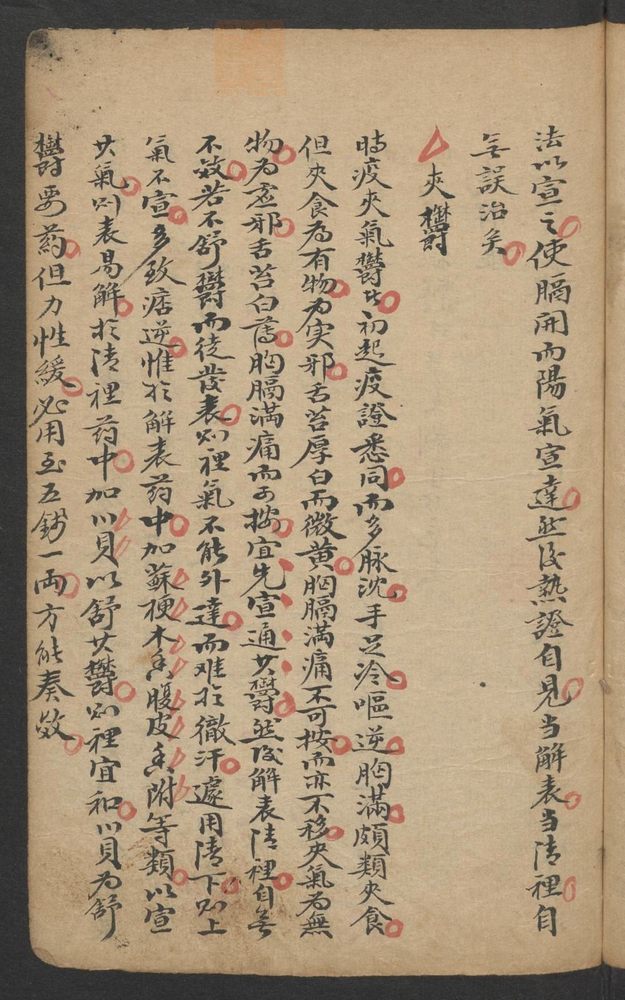 法以宣之使膈開而陽氣宣達然后熱證自見当解表当清裡自
無誤治矣
夾欝
時疫夾氣欝者初起疫證悉同而多脉沉手足冷嘔逆胸滿頗類夾食
但夾食為有物為实邪舌苔厚白而微黄胸膈満痛不可按而亦不移夾氣為無
物為虚邪舌苔白薄胸膈满痛而可按宜先宣通其欝然后解表清裡自無
不效若不舒欝而徒發表则裡氣不能外達而难於徹汗遽用清下则上
氣不宣多致痞逆惟於解表药中加蘇梗木香腹皮香附等類以宣
其氣则表易解於清裡药中加川貝以舒其欝则裡宜和川貝為舒
欝要药但力性緩必用至五錢一両方能奏效